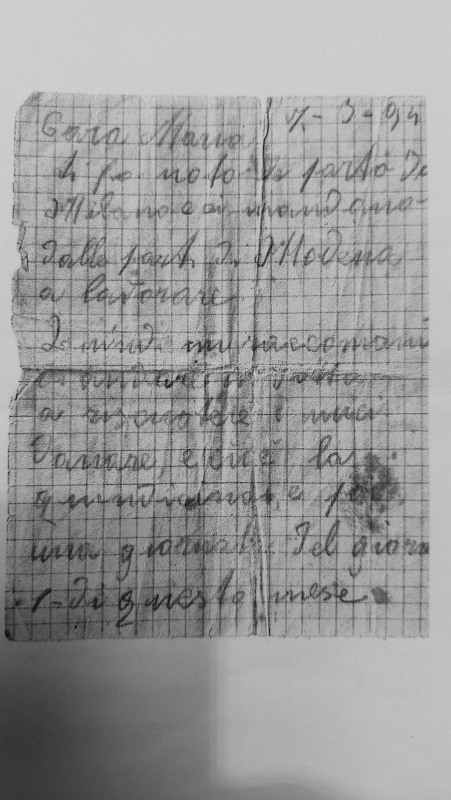 Cara Maria 7-3-
ti fo noto che parto da
Milano e ci mandano
dalle parti di Modena
a lavorare
Quindi mi raccomand
di andare in posto
a riscuotere i miei
danari, e cioè la
quindicina, e poi
una giornata del giorn
1 di questo mese